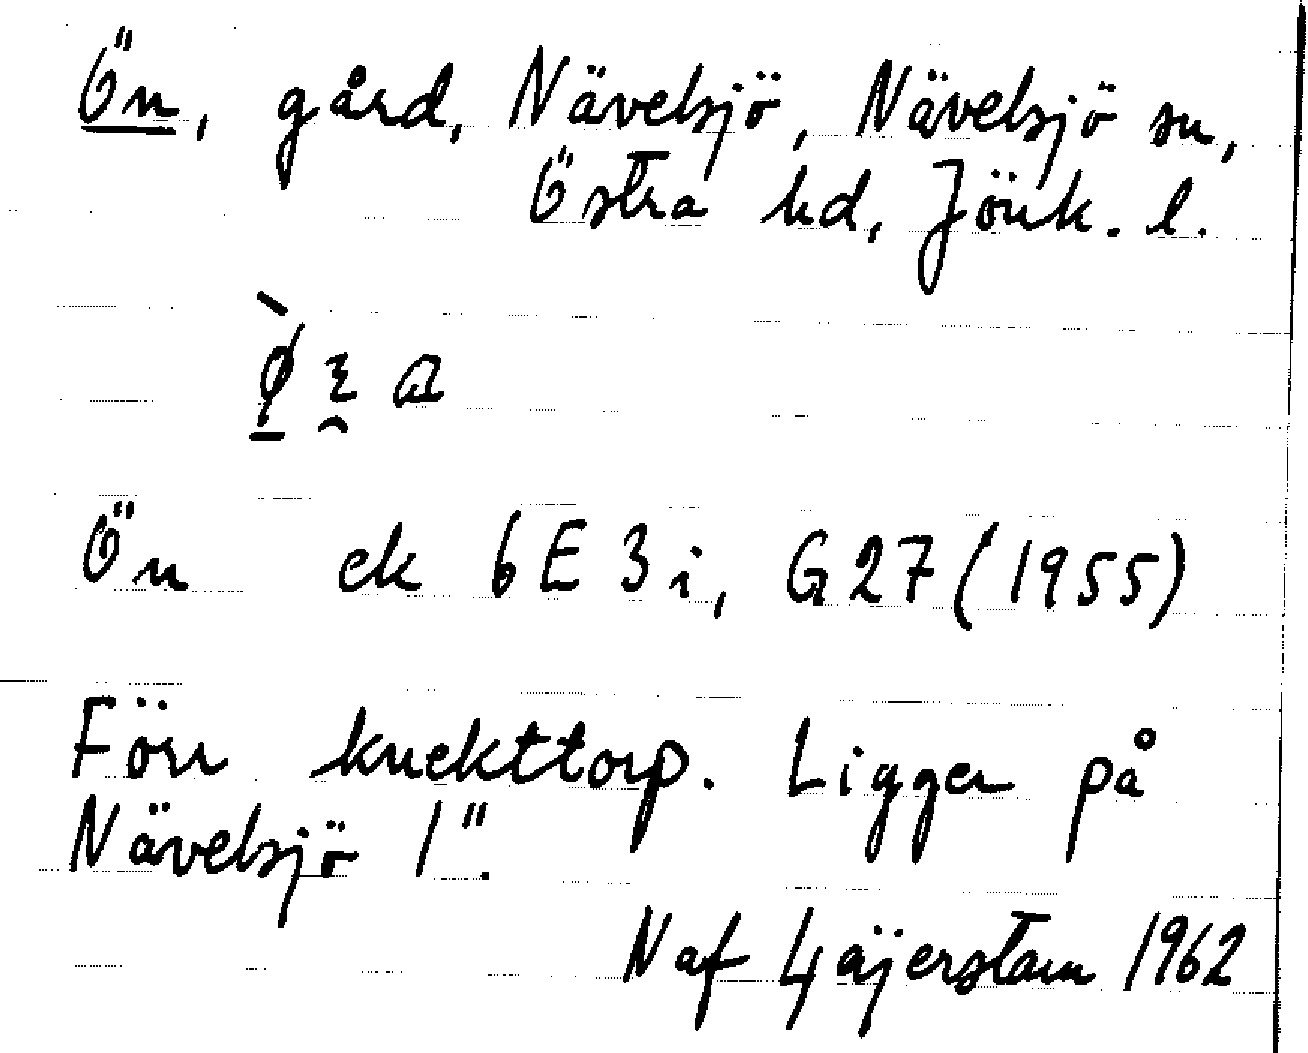 Ön, gård, Nävelsjö, Nävelsjö sn,
Östra hd, Jönk. l.
Ön ek 6E3i, G27(1955)
Förr knekttorp. Ligger på
Nävelsjö 1".
N af Gäijerstam 1962